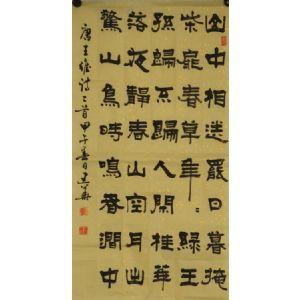 山中相送罷日暮掩
柴扉春草年〻綠王
孫歸不歸人閒桂華
落夜靜春山空月出
驚山鳥時鳴春澗中
唐王維詩二首甲午春日